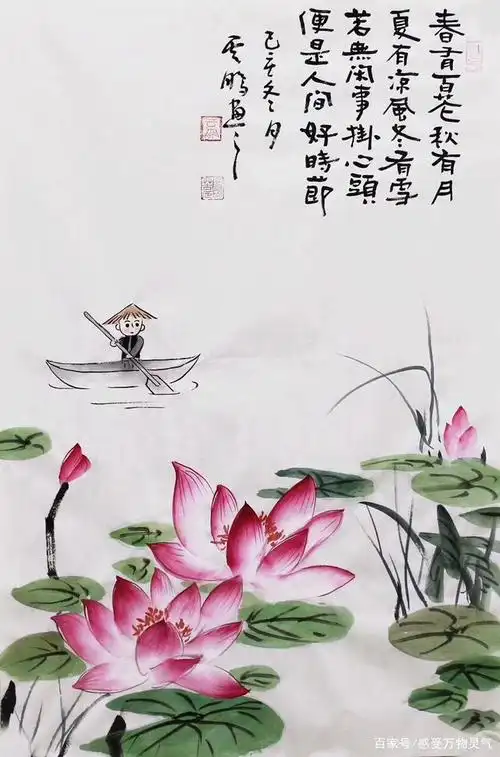 春有百花秋有月
夏有凉風冬有雪
若無闲事掛心頭
便是人间好時節
己亥冬月
百家号/感受万物灵气